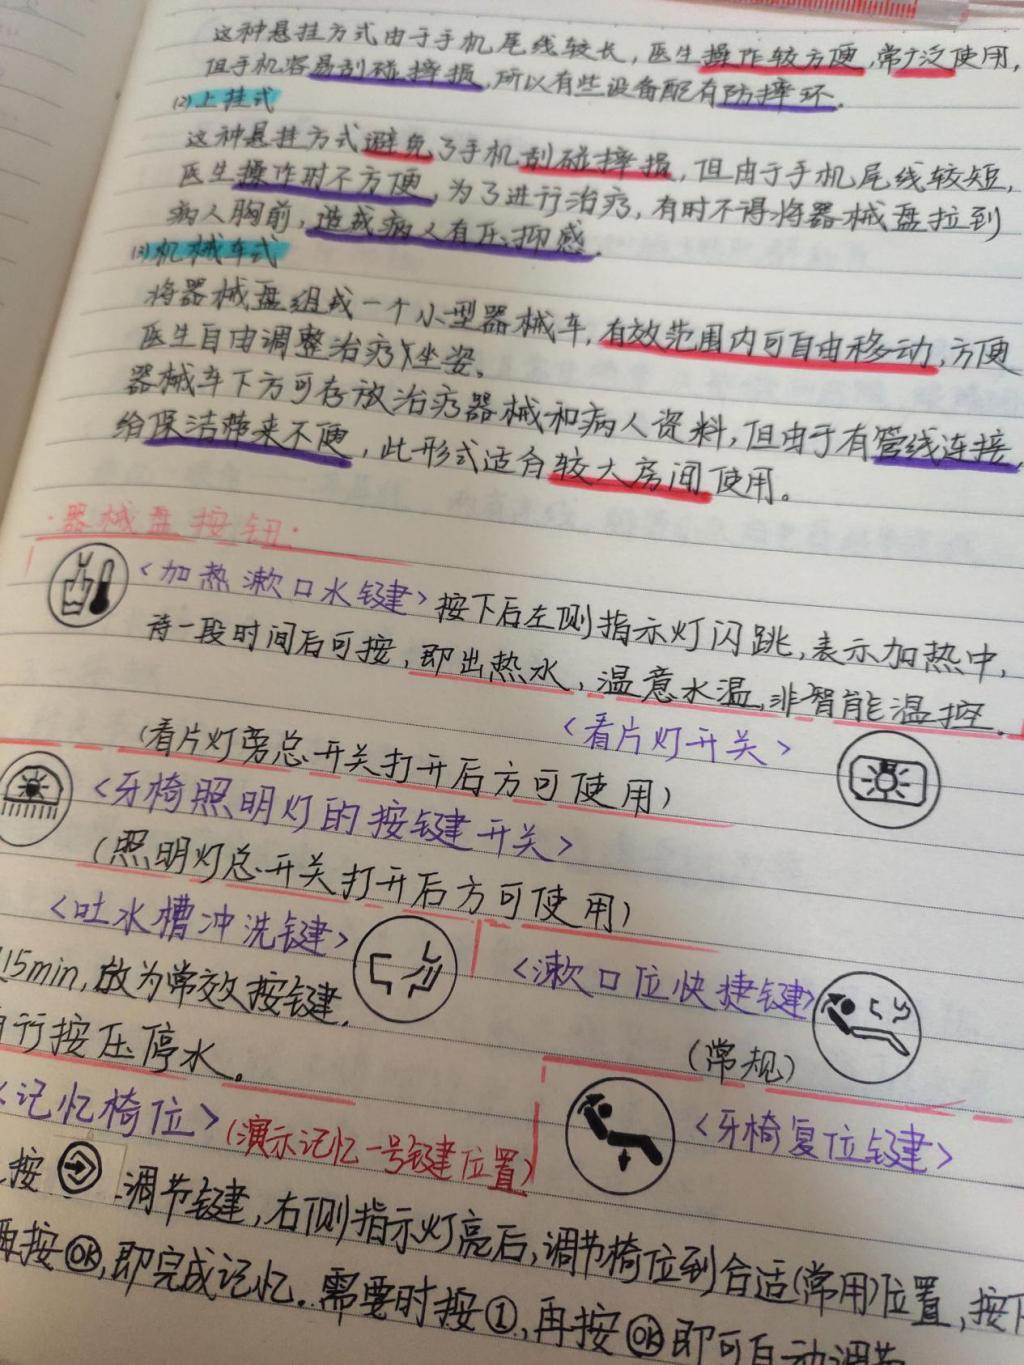 这种悬挂方式由于手机尾线较长，医生操作较方便，常广泛使用，
但手机容易刮碰摔损，所以有些设备配有防摔环。
(2)上挂式
这种悬挂方式避免了手机刮碰摔损，但由于手机尾线较短，
医生操作时不方便，为了进行治疗，有时不得将器械盘拉到
病人胸前，造成病人有压抑感。
(3)机械车式
将器械盘组成一个小型器械车，有效范围内可自由移动，方便
医生自由调整治疗坐姿。
器械车下方可存放治疗器械和病人资料，但由于有管线连接，
给保洁带来不便，此形式适合较大房间使用。
·器械盘按钮·
<加热漱口水键>按下后左侧指示灯闪跳，表示加热中，
待一段时间后可按，即出热水，温意水温，非智能温控。
<看片灯开关>
(看片灯旁总开关打开后方可使用)
<牙椅照明灯的按键开关>
(照明灯总开关打开后方可使用)
<吐水槽冲洗键>
15min，故为常效按键，
行按压停水。
<漱口位快捷键>
(常规)
<记忆椅位>(演示记忆一号键位置)
<牙椅复位键>
按 调节键，右侧指示灯亮后，调节椅位到合适(常用)位置，按下
再按OK，即完成记忆。需要时按①，再按OK即可自动调节